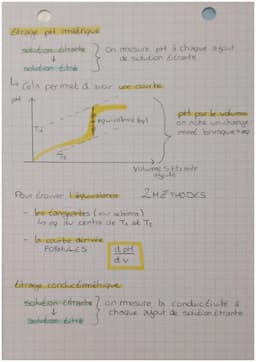 titrage pH métrique
solution titrante
↓
solution titré
on mesure pH à chaque ajout
de solution titrante
↳ Cela permet d'avoir une courbe
pH
T1
équivalence
T2
Volume S titrante
ajouté
pH par le volume
on note un change
ment brusque
Pour trouver l'équivalence 2 MÉTHODES
- les tangentes (voir schéma)
au centre de T1 et T2
- la courbe dérivée
FORMULES
d pH
d v
titrage conductimétrique
solution titrante
↓
solution titré
on mesure la conductivité à
chaque ajout de solution titrante